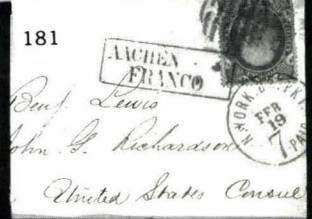 181
AACHEN
FRANCO
N. YORK. BR. PKT.
FEB
19
7
PAID
Benj Lewis
John G. Richardson
United States Consul